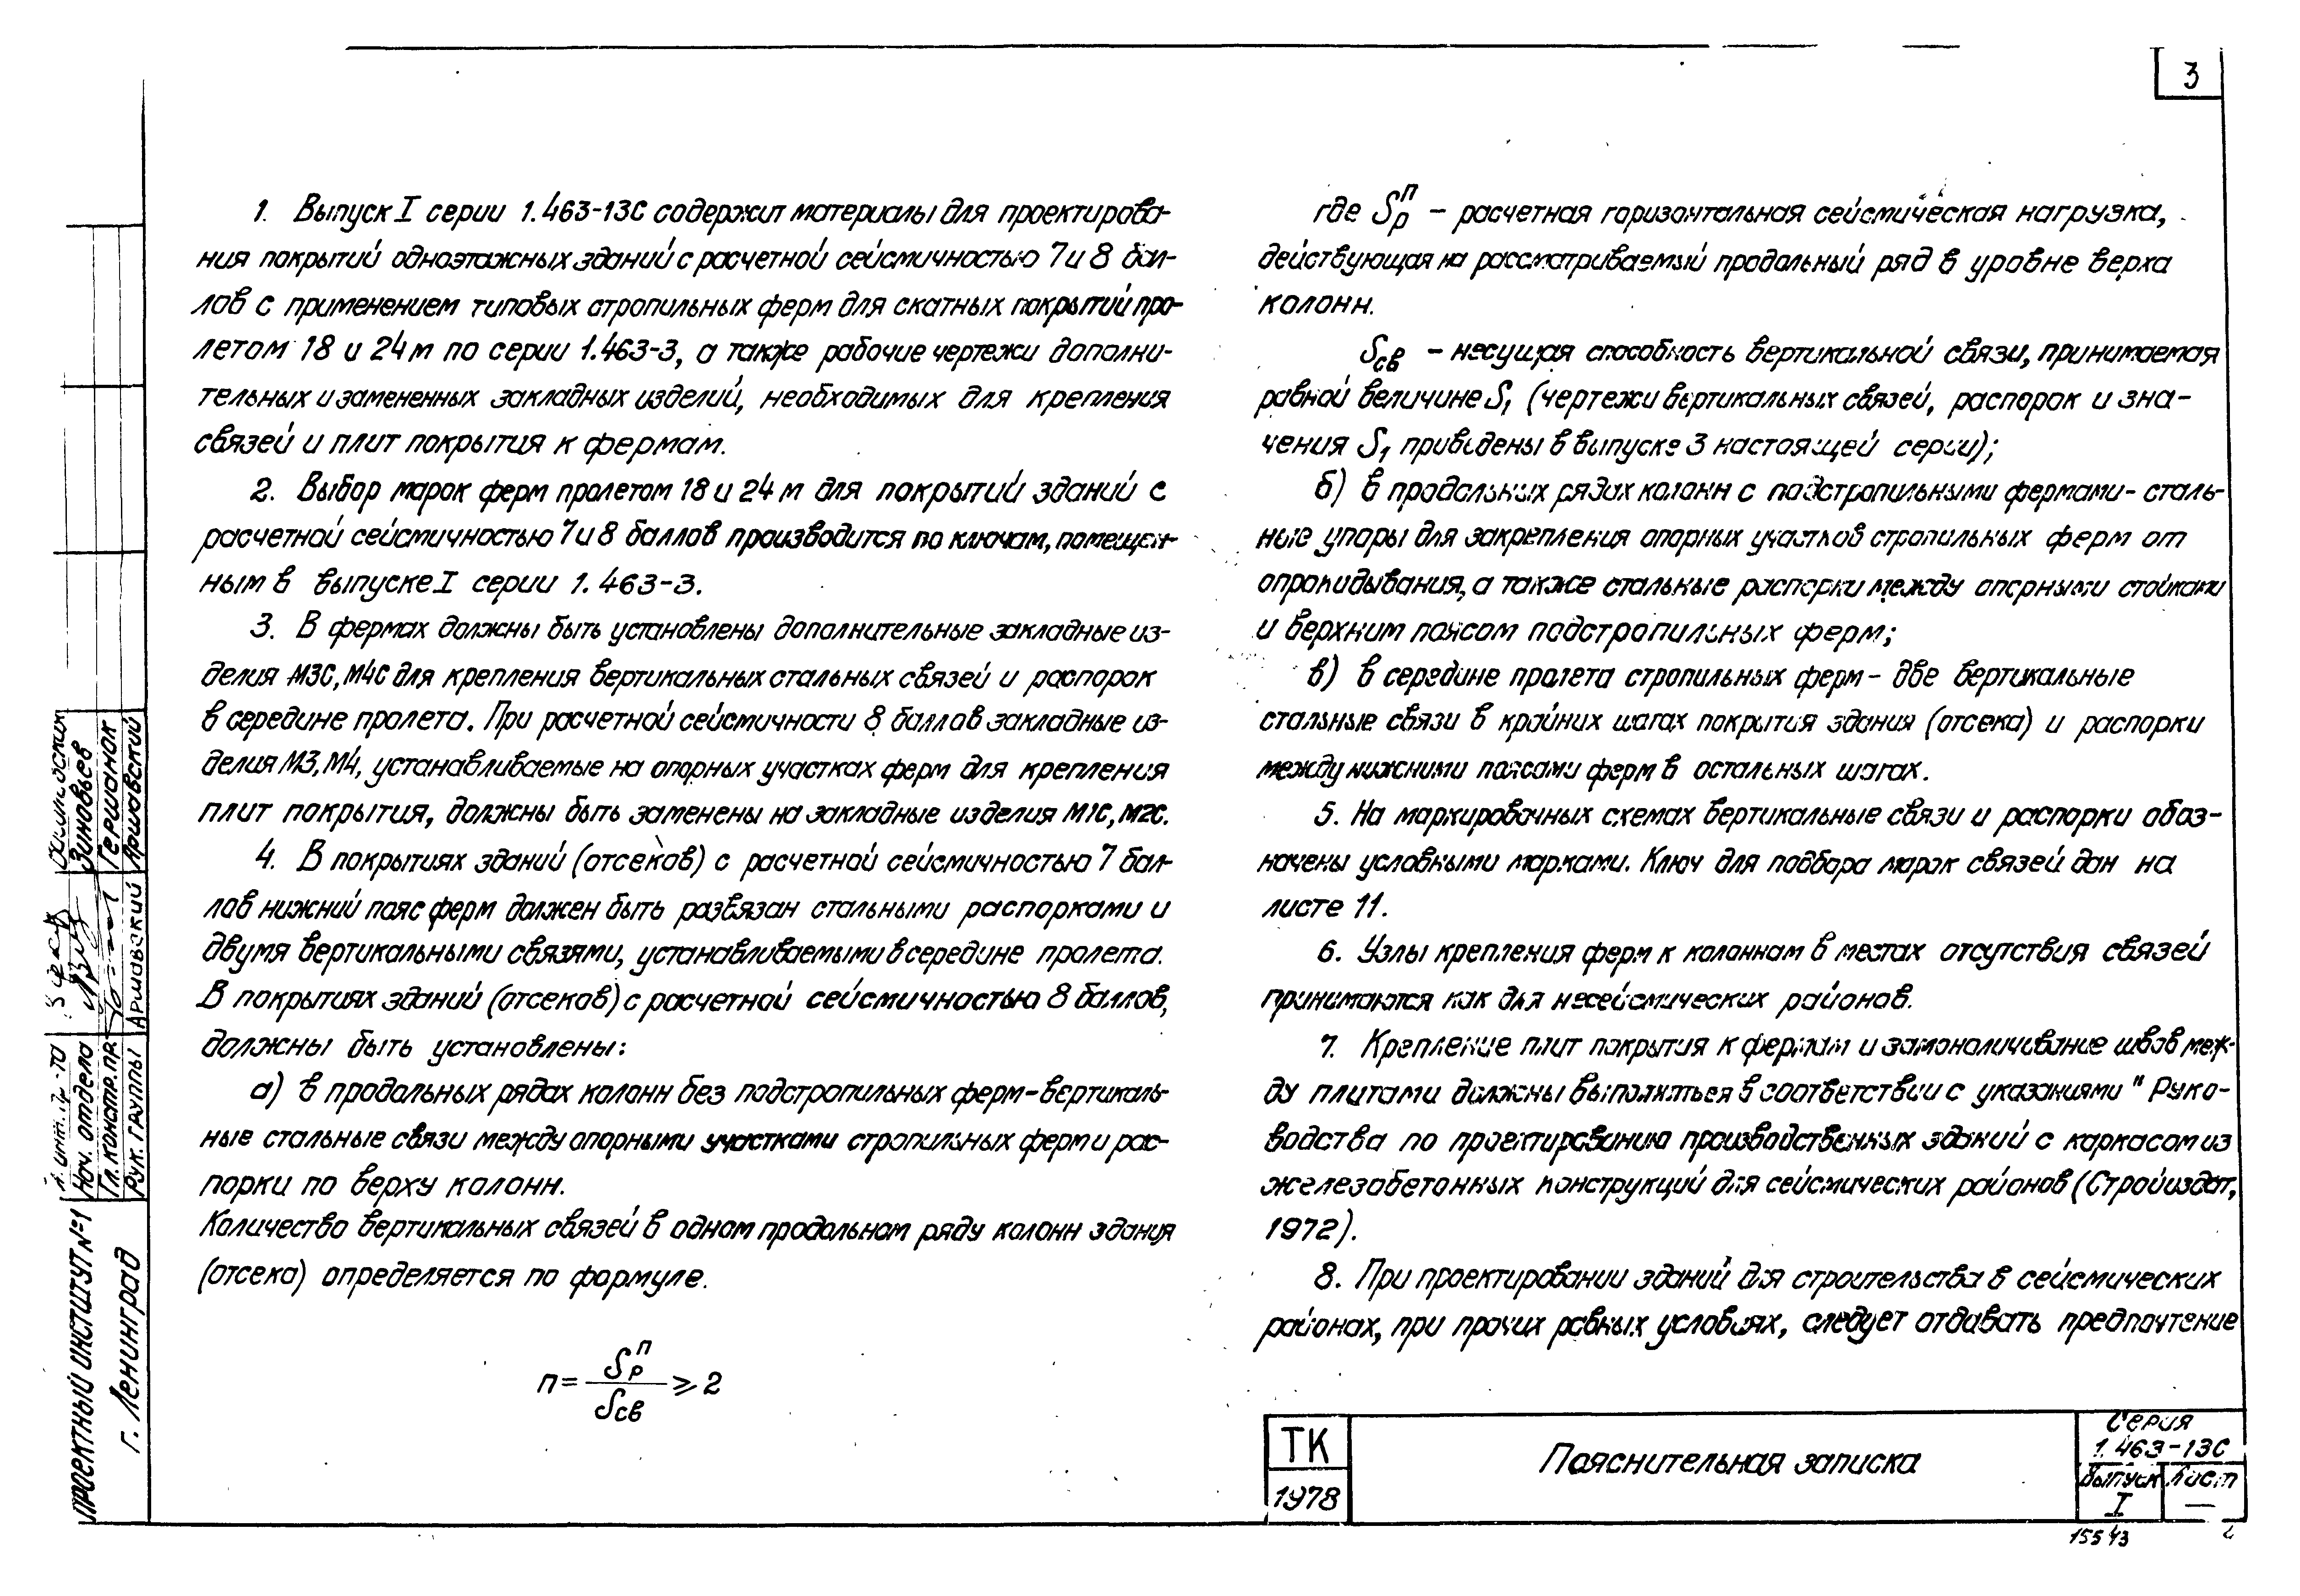 3
1. Выпуск I серии 1.463-13С содержит материалы для проектирова-
ния покрытий одноэтажных зданий с расчетной сейсмичностью 7 и 8 бал-
лов с применением типовых стропильных ферм для скатных покрытий про-
летом 18 и 24 м по серии 1.463-3, а также рабочие чертежи дополни-
тельных и замененных закладных изделий, необходимых для крепления
связей и плит покрытия к фермам.
2. Выбор марок ферм пролетом 18 и 24 м для покрытий зданий с
расчетной сейсмичностью 7 и 8 баллов производится по ключам, помещен-
ным в выпуске I серии 1.463-3.
3. В фермах должны быть установлены дополнительные закладные из-
делия М3С, М4С для крепления вертикальных стальных связей и распорок
в середине пролета. При расчетной сейсмичности 8 баллов закладные из-
делия М3, М4, устанавливаемые на опорных участках ферм для крепления
плит покрытия, должны быть заменены на закладные изделия М1С, М2С.
4. В покрытиях зданий (отсеков) с расчетной сейсмичностью 7 бал-
лов нижний пояс ферм должен быть развязан стальными распорками и
двумя вертикальными связями, устанавливаемыми в середине пролета.
В покрытиях зданий (отсеков) с расчетной сейсмичностью 8 баллов,
должны быть установлены:
а) в продольных рядах колонн без подстропильных ферм - вертикаль-
ные стальные связи между опорными участками стропильных ферм и рас-
порки по верху колонн.
Количество вертикальных связей в одном продольном ряду колонн здания
(отсека) определяется по формуле.
n = Sрп / Sсв ⩾ 2
где Sрп - расчетная горизонтальная сейсмическая нагрузка,
действующая на рассматриваемый продольный ряд в уровне верха
колонн.
Sсв - несущая способность вертикальной связи, принимаемая
равной величине S1 (чертежи вертикальных связей, распорок и зна-
чения S1 приведены в выпуске 3 настоящей серии);
б) в продольных рядах колонн с подстропильными фермами - сталь-
ные упоры для закрепления опорных участков стропильных ферм от
опрокидывания, а также стальные распорки между опорными стойками
и верхним поясом подстропильных ферм;
в) в середине пролета стропильных ферм - две вертикальные
стальные связи в крайних шагах покрытия здания (отсека) и распорки
между нижними поясами ферм в остальных шагах.
5. На маркировочных схемах вертикальные связи и распорки обоз-
начены условными марками. Ключ для подбора марок связей дан на
листе 11.
6. Узлы крепления ферм к колоннам в местах отсутствия связей
принимаются как для несейсмических районов.
7. Крепление плит покрытия к фермам и замоноличивание швов меж-
ду плитами должны выполняться в соответствии с указаниями "Руко-
водства по проектированию производственных зданий с каркасом из
железобетонных конструкций для сейсмических районов (Стройиздат,
1972).
8. При проектировании зданий для строительства в сейсмических
районах, при прочих равных условиях, следует отдавать предпочтение
ТК
1978
Пояснительная записка
Серия
1.463-13С
Выпуск
I
Лист
—
15543
Нач. отдела
Зиновьев
Гл. констр. пр.
Гершанок
Рук. группы
Армавский
Аршавский
Проектный институт №1
г. Ленинград